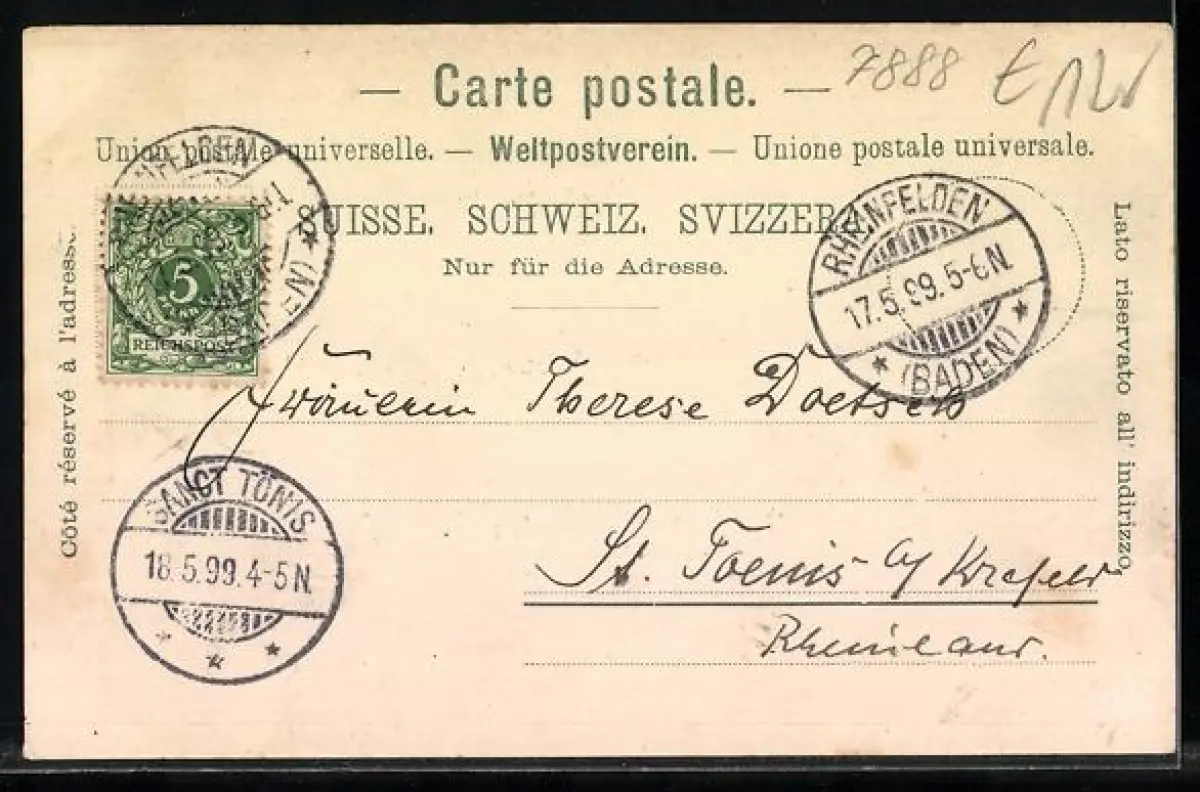 7888 €12
— Carte postale. —
Union postale universelle. — Weltpostverein. — Unione postale universale.
SUISSE. SCHWEIZ. SVIZZERA.
Nur für die Adresse.
Côté réservé à l'adresse.
Lato riservato all' indirizzo.
5
REICHSPOST
RHEINFELDEN
17.5.99.5-6N.
(BADEN)
Fräulein Therese Doetsch
SANCT TÖNIS
18.5.99.4-5N.
St. Toenis b/ Krefeld
Rheinland.